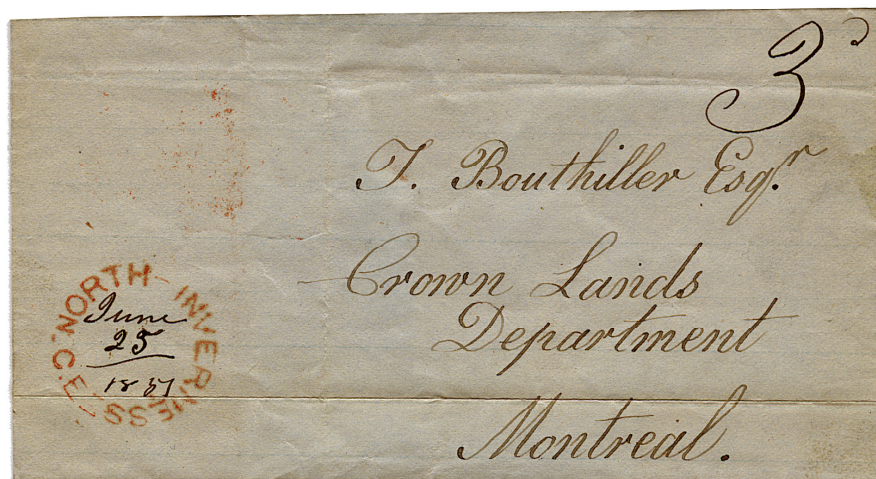 3
T. Bouthiller Esqr.
Crown Lands
Department
Montreal.
NORTH INVERNESS C.E.
June
25
1851